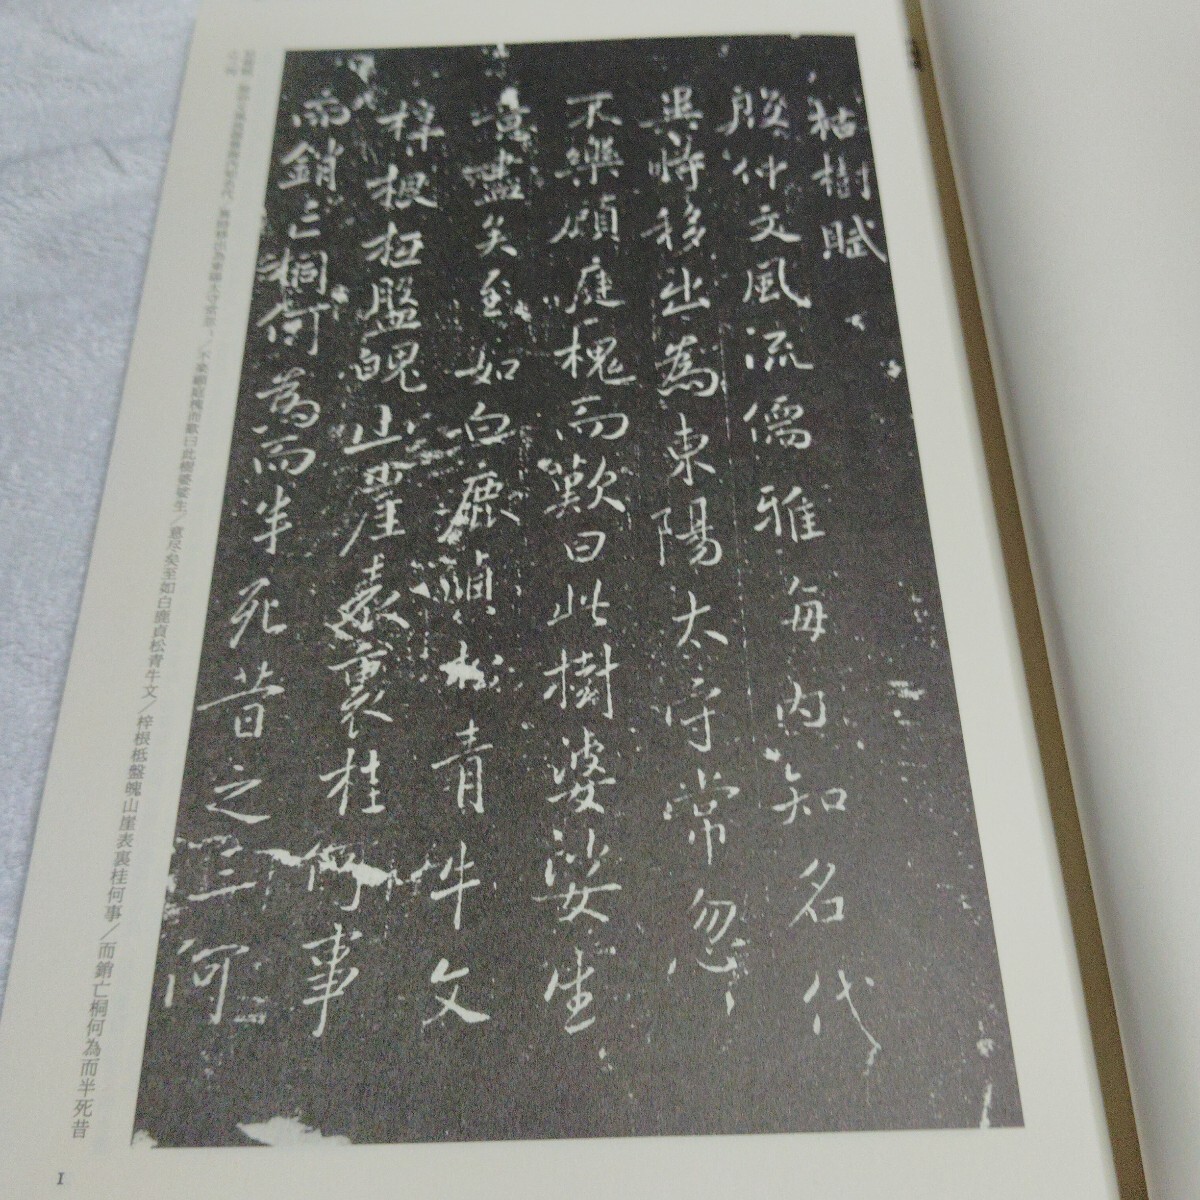 枯樹賦
殷仲文風流儒雅海内知名代
異時移出為東陽太守常忽〻
不樂顧庭槐而歎曰此樹婆娑生
意盡矣至如白鹿貞松青牛文
梓根柢盤魄山崖表裏桂何事
而銷亡桐何為而半死昔之三河
枯樹賦／殷仲文風流儒雅海内知名代／異時移出為東陽太守常忽〻／不楽顧庭槐而歎曰此樹婆娑生／意尽矣至如白鹿貞松青牛文／梓根柢盤魄山崖表裏桂何事／而銷亡桐何為而半死昔
之三河
1